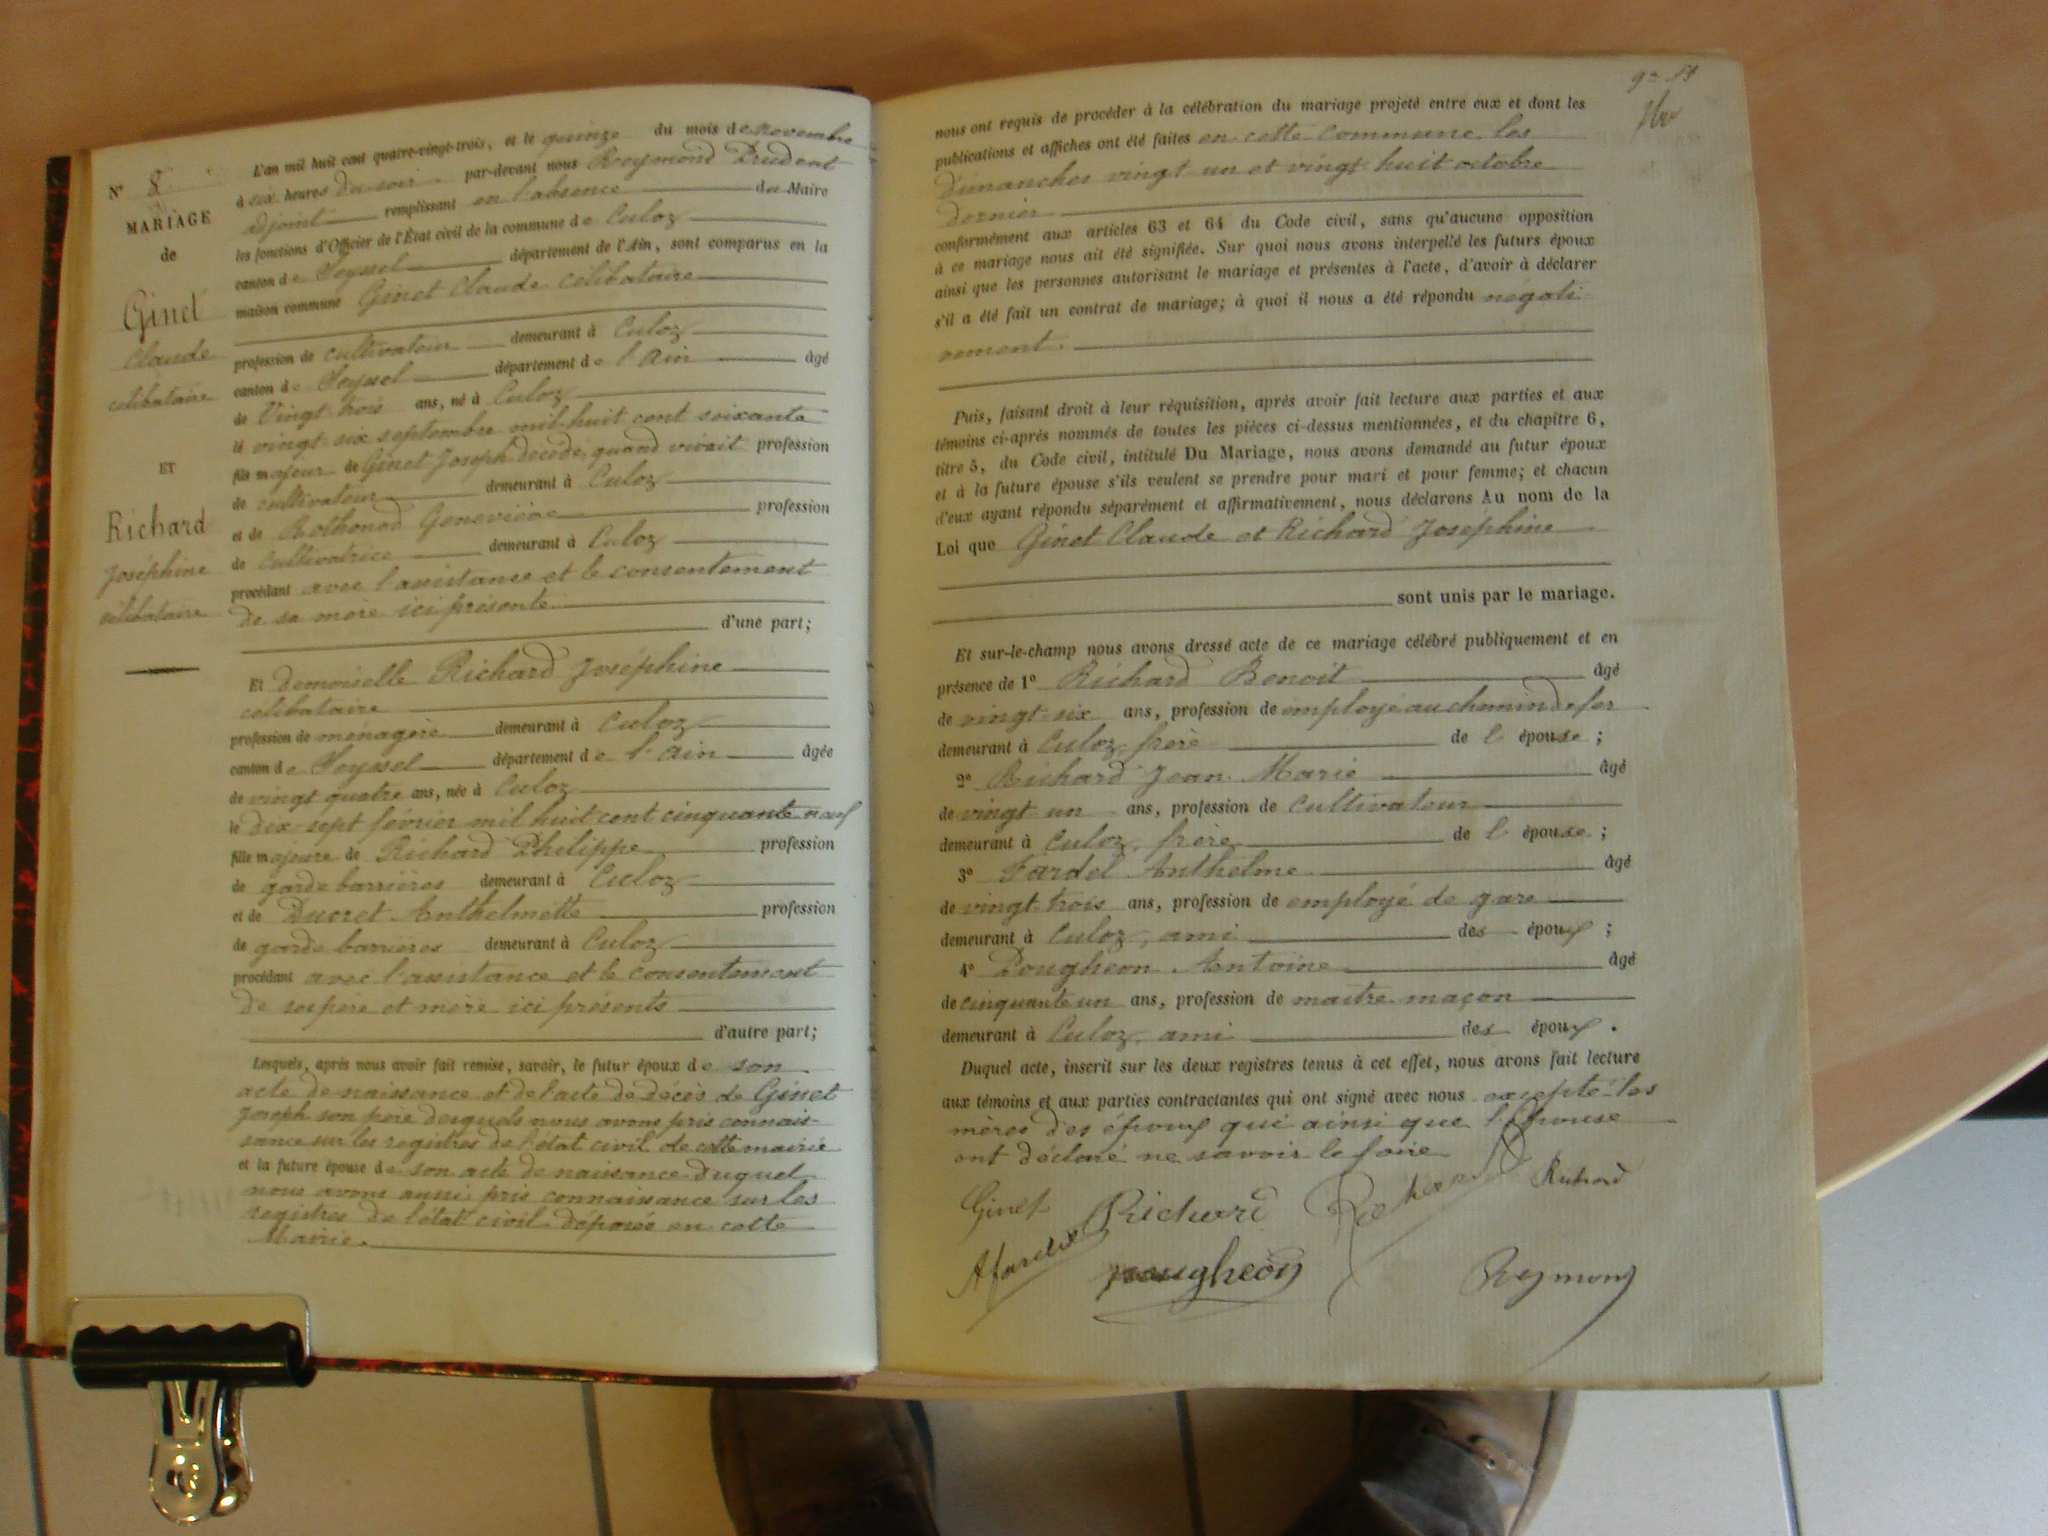 N° 8
MARIAGE
de
Ginet
Claude
célibataire
ET
Richard
Joséphine
célibataire
L'an mil huit cent quatre-vingt-trois, et le quinze du mois de novembre
à six heures du soir par-devant nous Reymond Prudent
adjoint remplissant en l'absence du Maire
les fonctions d'Officier de l'État civil de la commune de Culoz
canton de Seyssel département de l'Ain, sont comparus en la
maison commune Ginet Claude célibataire
profession de cultivateur demeurant à Culoz
canton de Seyssel département de l'Ain âgé
de Vingt trois ans, né à Culoz
le vingt six septembre mil huit cent soixante
fils majeur de Ginet Joseph décédé, quand vivait profession
de cultivateur demeurant à Culoz
et de Bothonod Geneviève profession
de Cultivatrice demeurant à Culoz
procédant avec l'assistance et le consentement
de sa mère ici présente
d'une part;
Et demoiselle Richard Joséphine
célibataire
profession de ménagère demeurant à Culoz
canton de Seyssel département de l'Ain âgée
de vingt quatre ans, née à Culoz
le dix sept février mil huit cent cinquante neuf
fille majeure de Richard Philippe profession
de garde barrières demeurant à Culoz
et de Ducret Anthelmette profession
de garde barrières demeurant à Culoz
procédant avec l'assistance et le consentement
de ses père et mère ici présents
d'autre part;
Lesquels, après nous avoir fait remise, savoir, le futur époux de son
acte de naissance et de l'acte de décès de Ginet
Joseph son père desquels nous avons pris connais-
sance sur les registres de l'état civil de cette mairie
et la future épouse de son acte de naissance duquel
nous avons aussi pris connaissance sur les
registres de l'état civil déposés en cette
Mairie.
nous ont requis de procéder à la célébration du mariage projeté entre eux et dont les
publications et affiches ont été faites en cette commune les
dimanches vingt un et vingt huit octobre
dernier
conformément aux articles 63 et 64 du Code civil, sans qu'aucune opposition
à ce mariage nous ait été signifiée. Sur quoi nous avons interpellé les futurs époux
ainsi que les personnes autorisant le mariage et présentes à l'acte, d'avoir à déclarer
s'il a été fait un contrat de mariage; à quoi il nous a été répondu négati
vement.
Puis, faisant droit à leur réquisition, après avoir fait lecture aux parties et aux
témoins ci-après nommés de toutes les pièces ci-dessus mentionnées, et du chapitre 6,
titre 5, du Code civil, intitulé Du Mariage, nous avons demandé au futur époux
et à la future épouse s'ils veulent se prendre pour mari et pour femme; et chacun
d'eux ayant répondu séparément et affirmativement, nous déclarons Au nom de la
Loi que Ginet Claude et Richard Joséphine
sont unis par le mariage.
Et sur-le-champ nous avons dressé acte de ce mariage célébré publiquement et en
présence de 1° Richard Benoit âgé
de vingt six ans, profession de employé au chemin de fer
demeurant à Culoz, frère de l'épouse;
2° Richard Jean Marie âgé
de vingt un ans, profession de Cultivateur
demeurant à Culoz, frère de l'épouse;
3° Fardel Anthelme âgé
de vingt trois ans, profession de employé de gare
demeurant à Culoz, ami des époux;
4° Pougheon Antoine âgé
de cinquante un ans, profession de maître maçon
demeurant à Culoz, ami des époux.
Duquel acte, inscrit sur les deux registres tenus à cet effet, nous avons fait lecture
aux témoins et aux parties contractantes qui ont signé avec nous excepté les
mères des époux qui ainsi que l'épouse
ont déclaré ne savoir le faire
Ginet Richard Richard Richard
A fardel pougheon Reymond